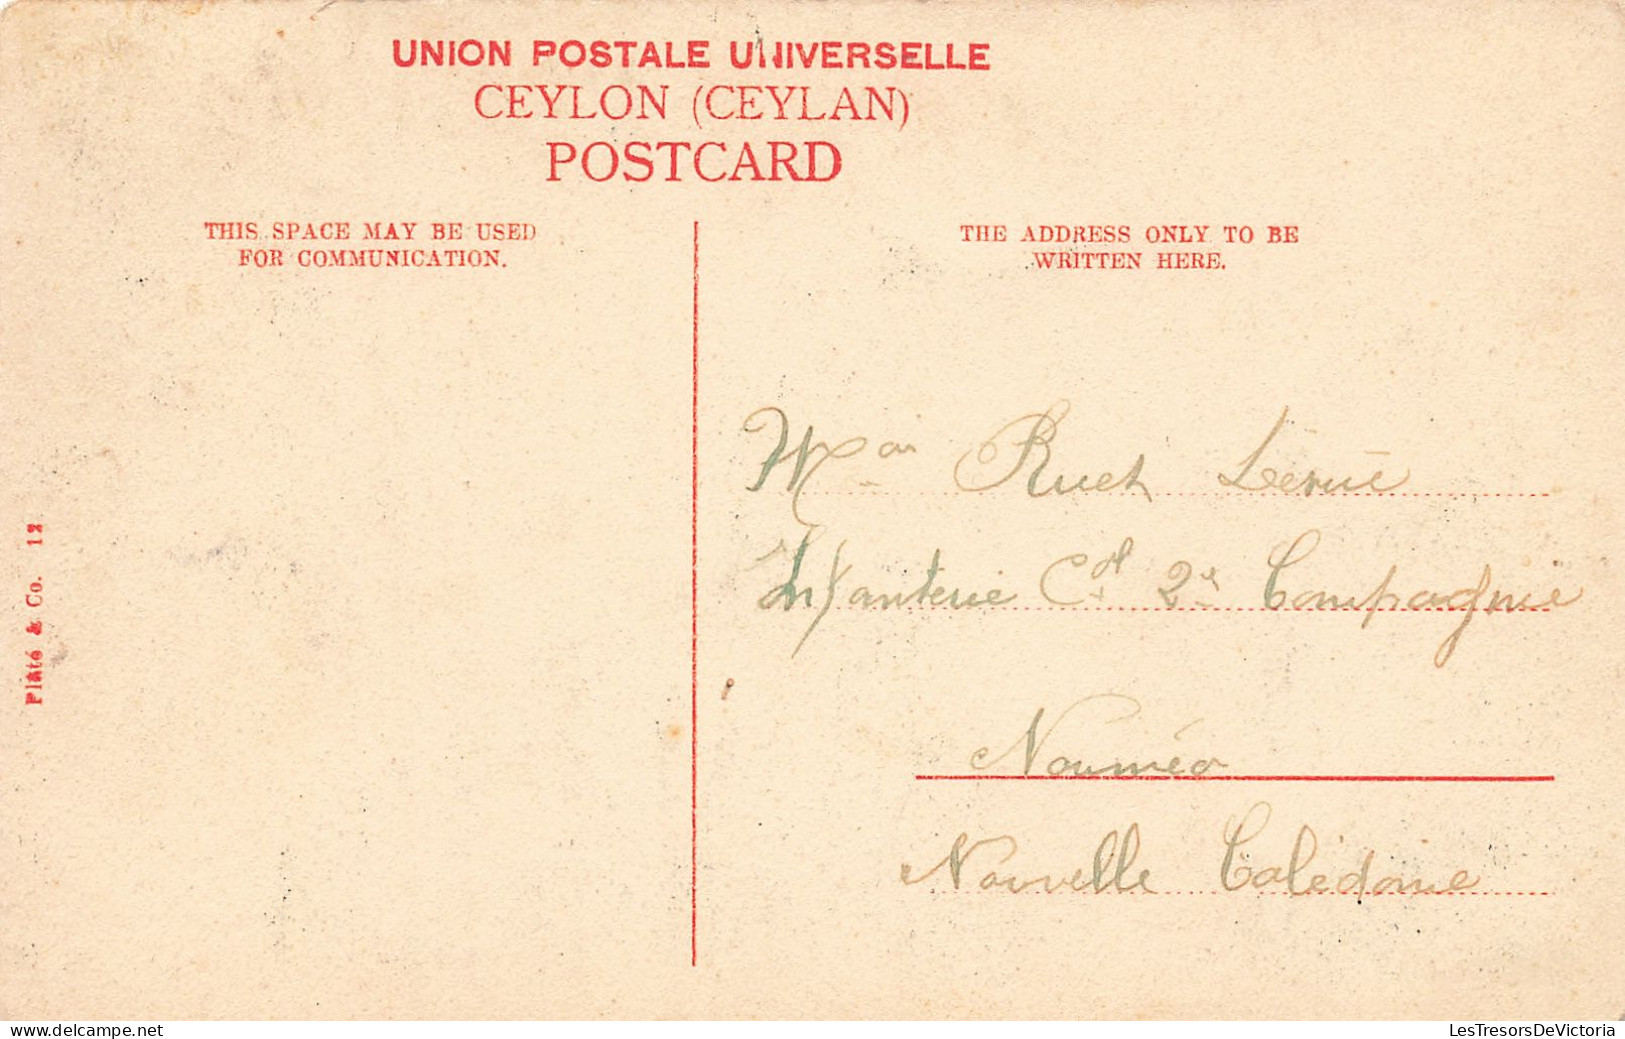 UNION POSTALE UNIVERSELLE
CEYLON (CEYLAN)
POSTCARD
THIS SPACE MAY BE USED
FOR COMMUNICATION.
THE ADDRESS ONLY TO BE
WRITTEN HERE.
Ruch
Infanterie Cl 2e Compagnie
Nouméa
Nouvelle Calédonie
Plâté & Co. 12
delcampe.net
LesTresorsDeVictoria